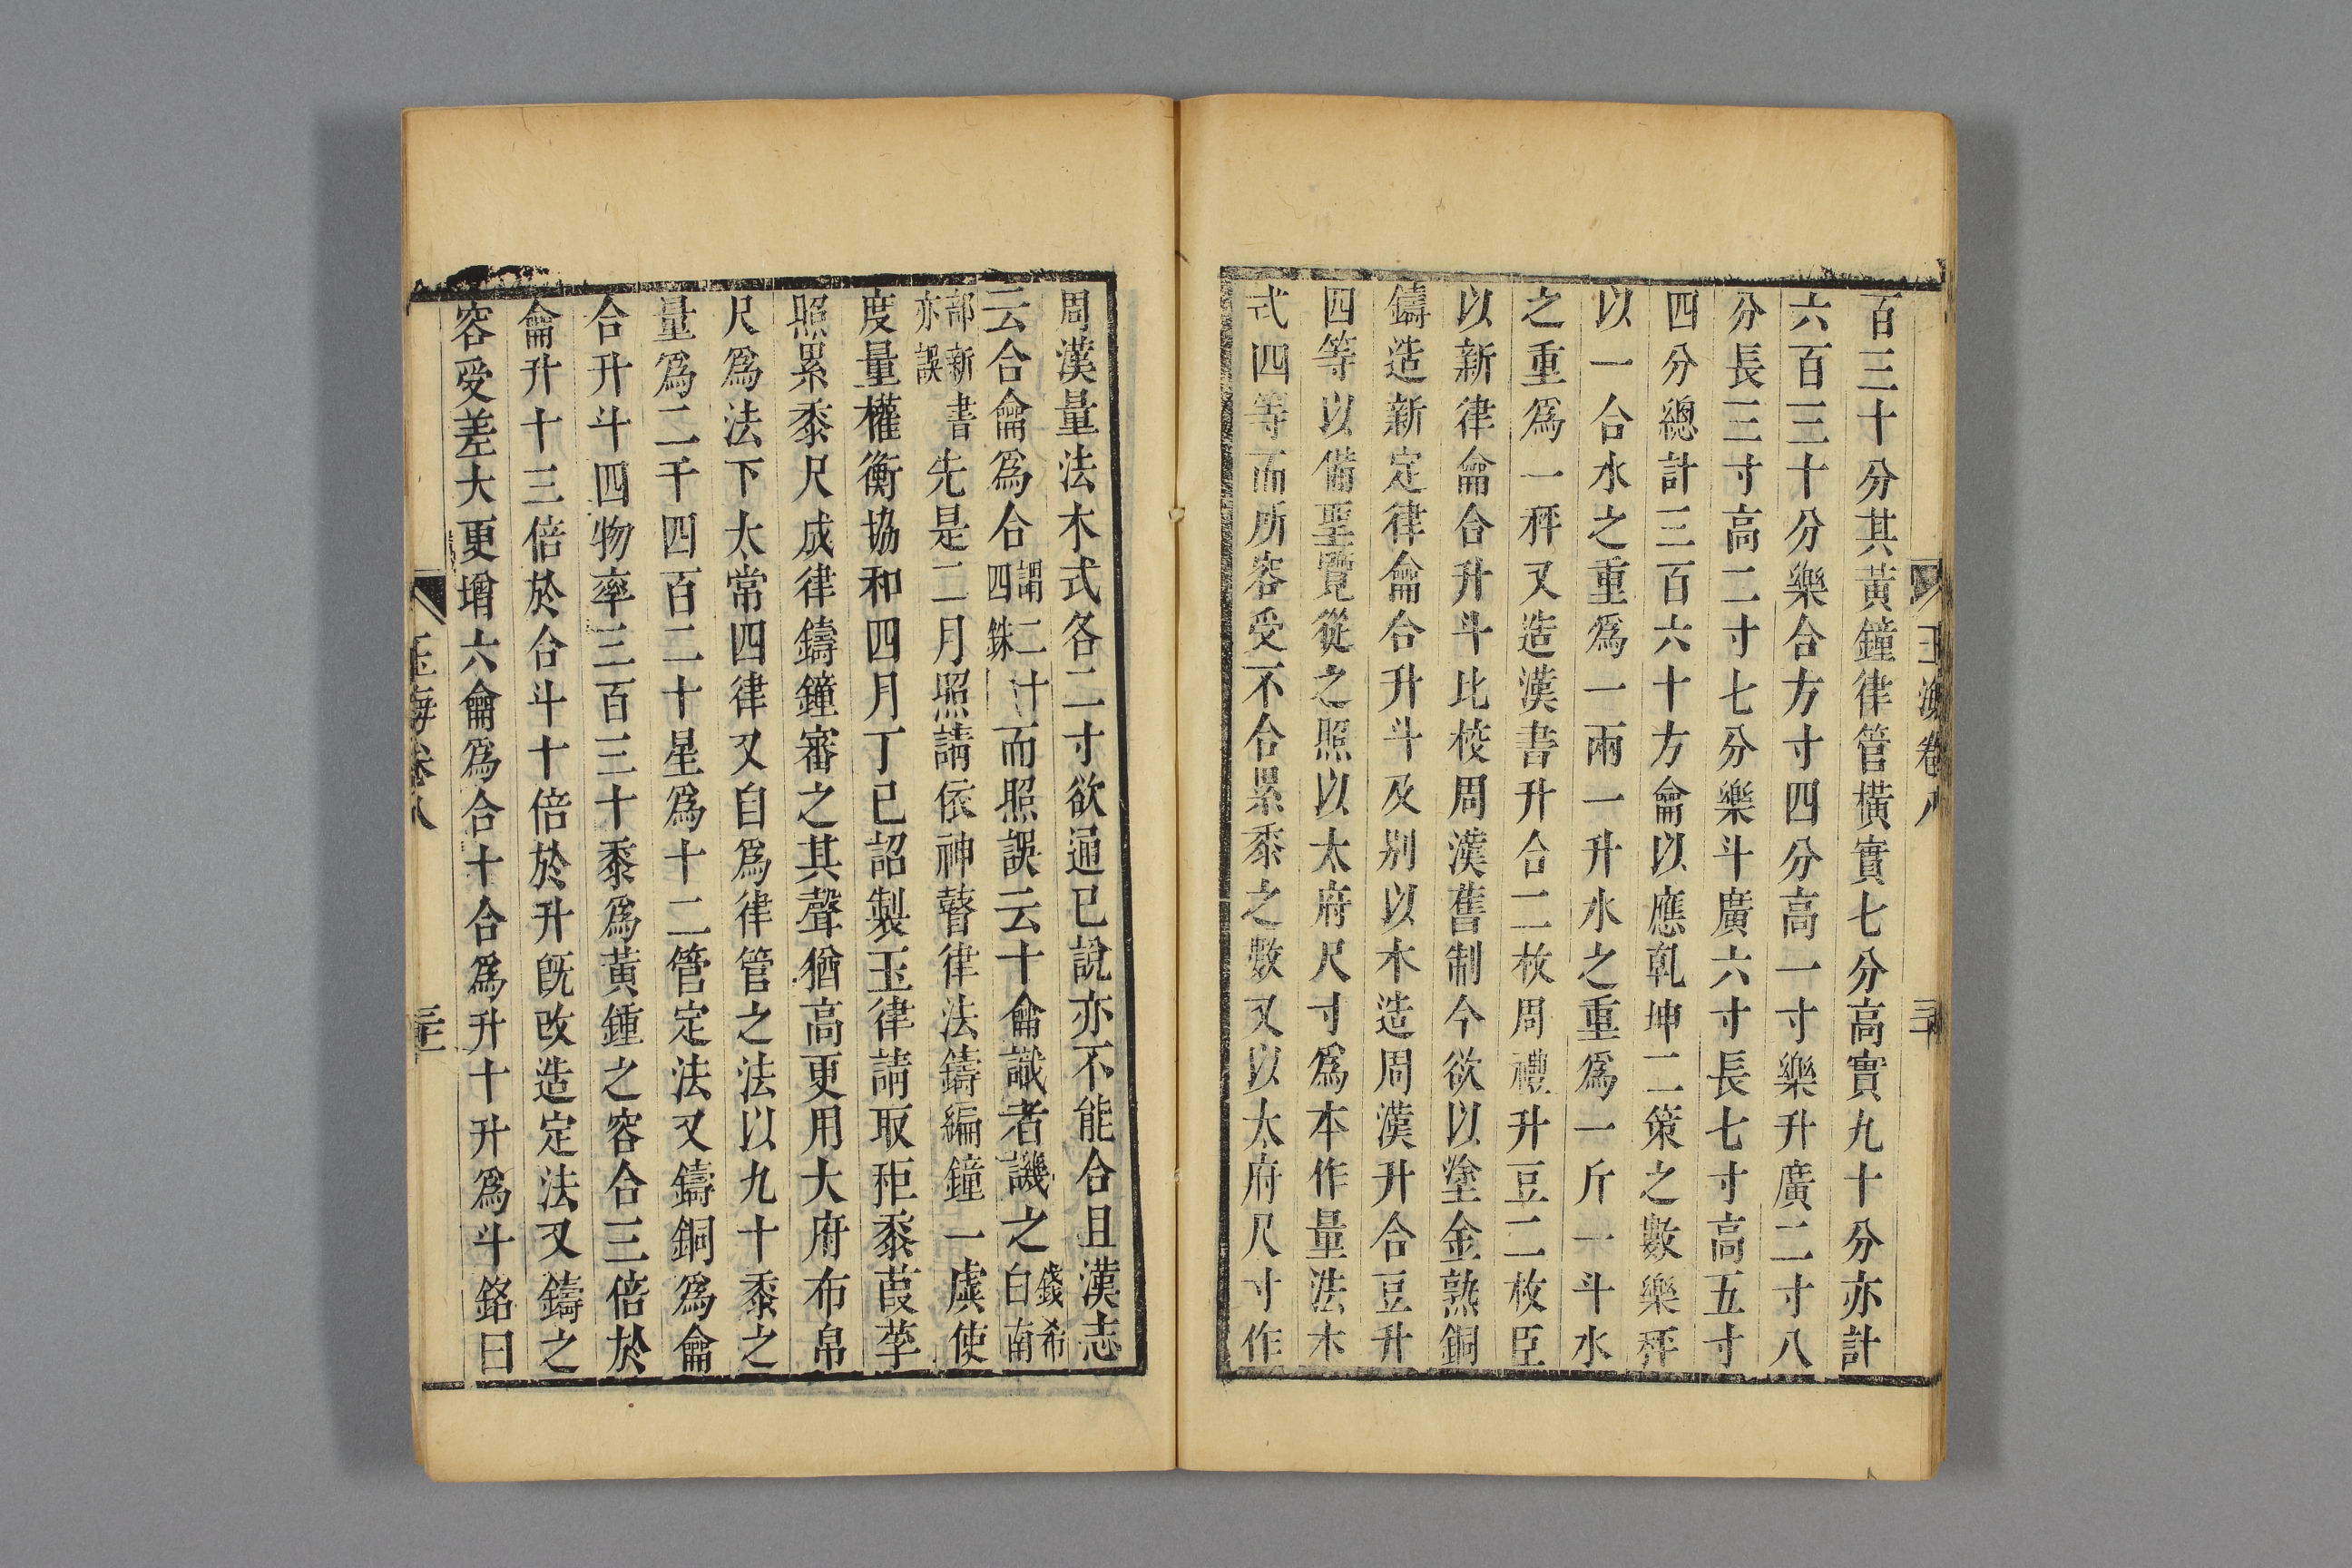 百三十分其黃鐘律管橫實七分高實九十分亦計
六百三十分樂合方寸四分高一寸樂升廣二寸八
分長三寸高二寸七分樂斗廣六寸長七寸高五寸
四分總計三百六十方龠以應乹坤二策之數樂秤
以一合水之重爲一兩一升水之重爲一斤一斗水
之重爲一秤又造漢書升合二枚周禮升豆二枚臣
以新律龠合升斗比校周漢舊制今欲以塗金熟銅
鑄造新定律龠合升斗及別以木造周漢升合豆升
四等以備聖覽從之照以太府尺寸爲本作量法木
式四等而所容受不合累黍之數又以太府尺寸作
玉海卷八
三十
周漢量法木式各二寸欲通已說亦不能合且漢志
云合龠爲合謂二十四銖而照誤云十龠識者譏之錢希白南
部新書亦誤先是二月照請依神瞽律法鑄編鐘一虡使
度量權衡協和四月丁已詔製玉律請取秬黍葭莩
照累黍尺成律鑄鐘審之其聲猶高更用大府布帛
尺爲法下太常四律又自爲律管之法以九十黍之
量爲二千四百二十星爲十二管定法又鑄銅爲龠
合升斗四物率三百三十黍爲黃鍾之容合三倍於
龠升十三倍於合斗十倍於升旣改造定法又鑄之
容受差大更增六龠爲合十合爲升十升爲斗銘曰
玉海卷八
三十一